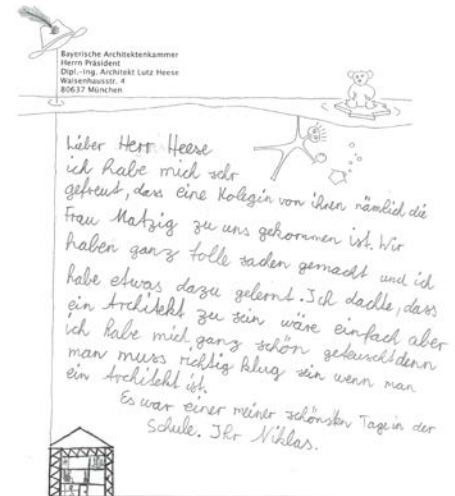 Bayerische Architektenkammer
Herrn Präsident
Dipl.-Ing. Architekt Lutz Heese
Waisenhausstr. 4
80637 München
Lieber Herr Heese
ich habe mich sehr
gefreut, dass eine Kolegin von ihnen nämlich die
Frau Matzig zu uns gekommen ist. Wir
haben ganz tolle sachen gemacht und ich
habe etwas dazu gelernt. Ich dachte, dass
ein Architekt zu sein wäre einfach aber
ich habe mich ganz schön geteuscht denn
man muss richtig klug sein wenn man
ein Architekt ist.
Es war einer meiner schönsten Tage in der
Schule. Ihr Niklas.